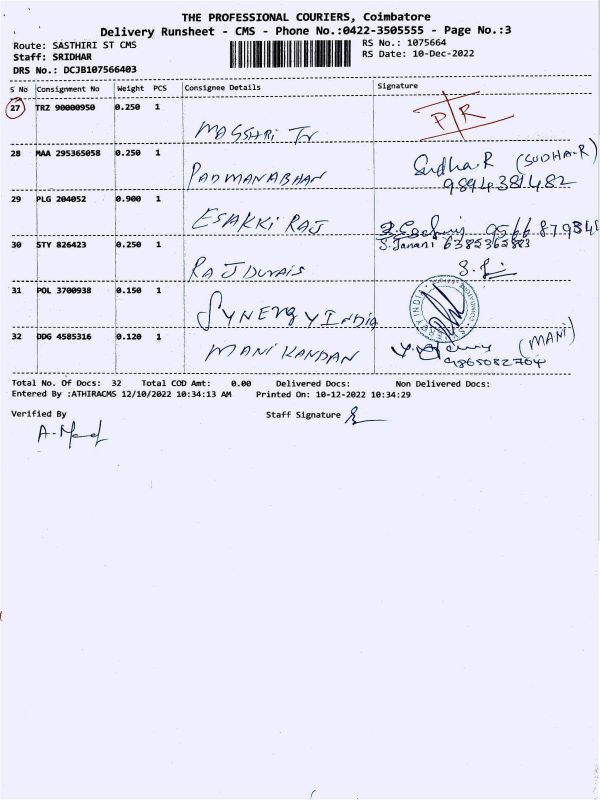 THE PROFESSIONAL COURIERS, Coimbatore
Delivery Runsheet - CMS - Phone No.:0422-3505555 - Page No.:3
Route: SASTHIRI ST CMS RS No.: 1075664
Staff: SRIDHAR RS Date: 10-Dec-2022
DRS No.: DCJB107566403
S No Consignment No Weight PCS Consignee Details Signature
27 TRZ 90000950 0.250 1 P/R
28 MAA 295365058 0.250 1 PADMANABHAN Sudha.R (SUDHA-R)
9894381482
29 PLG 204052 0.900 1 ESAKKI RAJ 9566879348
30 STY 826423 0.250 1 RAJDURAIS S.Janani 6385362883
31 POL 3700938 0.150 1 SYNERGY INDIA
32 DDG 4585316 0.120 1 MANIKANDAN (MANI)
9865082704
Total No. Of Docs: 32 Total COD Amt: 0.00 Delivered Docs: Non Delivered Docs:
Entered By :ATHIRACMS 12/10/2022 10:34:13 AM Printed On: 10-12-2022 10:34:29
Verified By Staff Signature